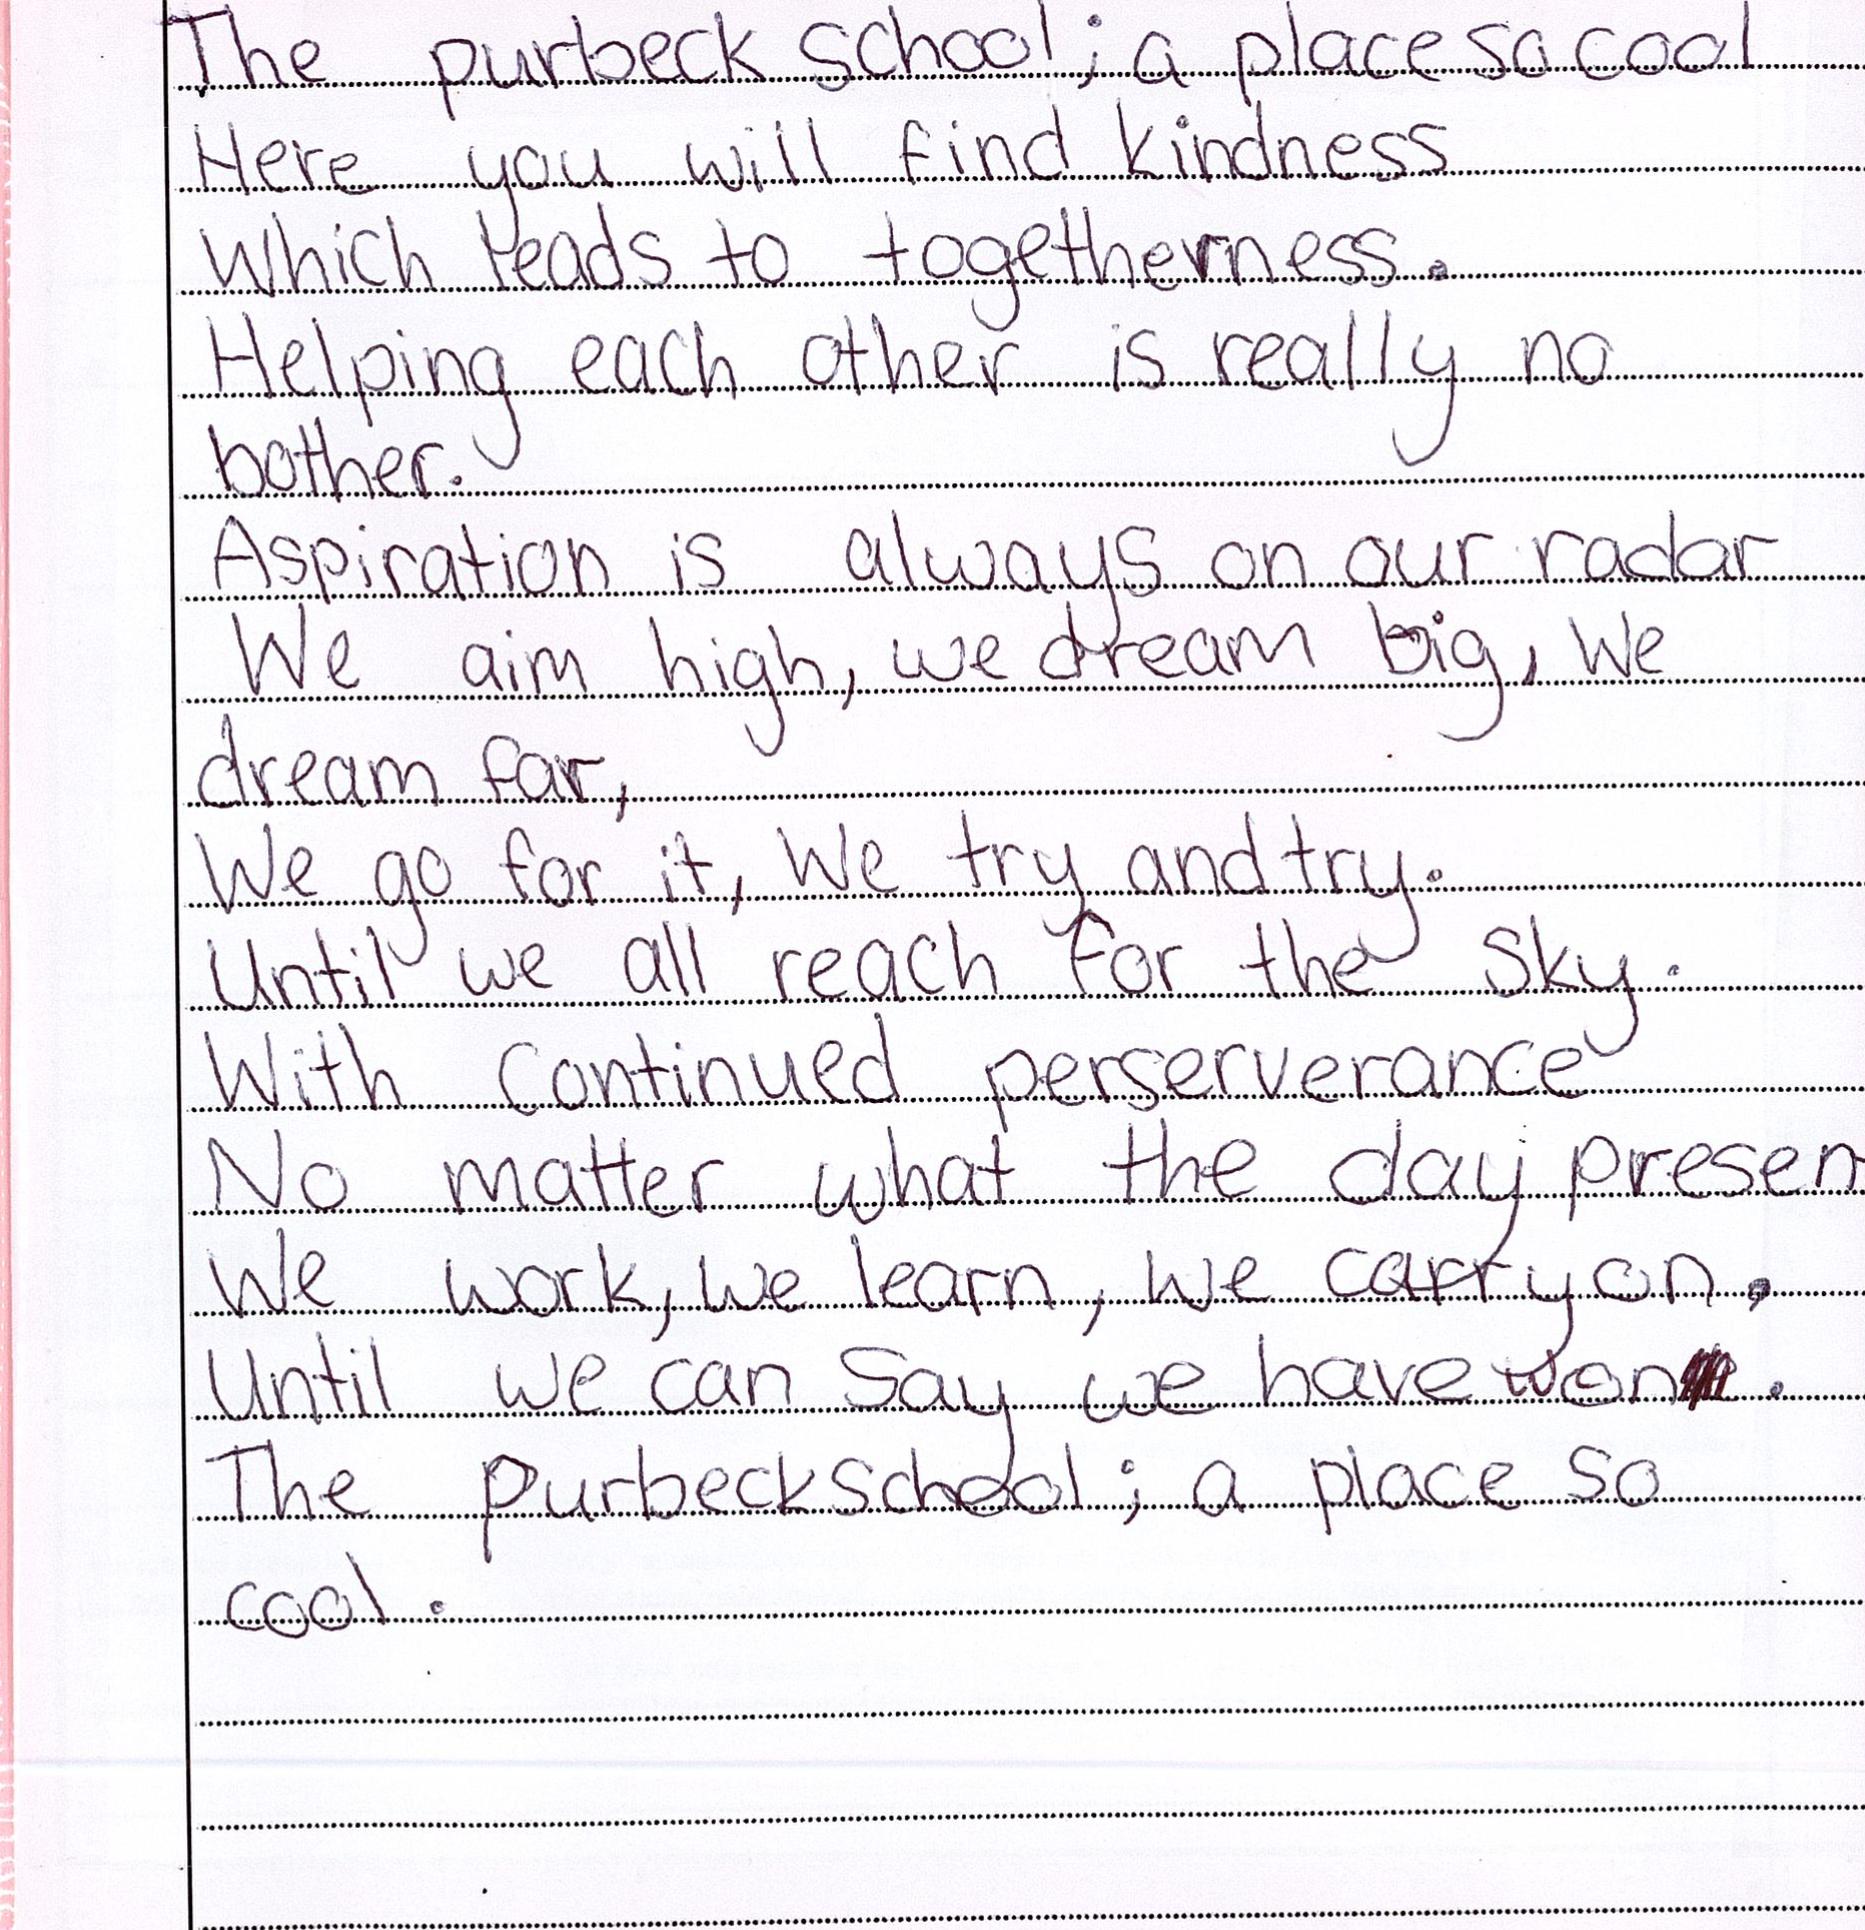 The purbeck school; a place so cool
Here you will find kindness
Which leads to togetherness.
Helping each other is really no
bother.
Aspiration is always on our radar
We aim high, we dream big, We
dream far,
We go for it, We try and try.
Until we all reach for the sky.
With continued perserverance
No matter what the day presen
We work, we learn, we carry on.
Until we can say we have won.
The purbeck school; a place so
cool.